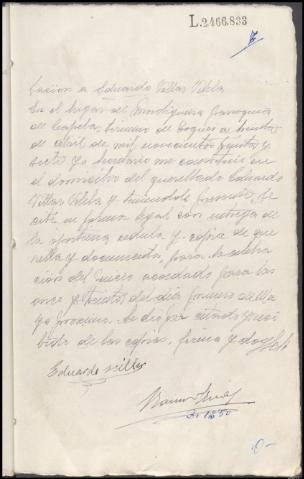 L.2466.833
Citacion a Eduardo Villar Vilela
En el lugar de Mondiguera parroquia
de termino de a treinta
de abril de mil novecientos treinta y
siete yo Secretario me constitui en
el domicilio del querellado Eduardo
Villar Vilela y teniendole presente, le
cité en forma legal con entrega de
la oportuna cedula y copia de que
rella y documento, para la celebra
cion del juicio acordado para las
once y treinta del dia primero de Ma
yo proximo. Se dio por citado y reci
bida de las copias, firma y doy fe
Eduardo Villar